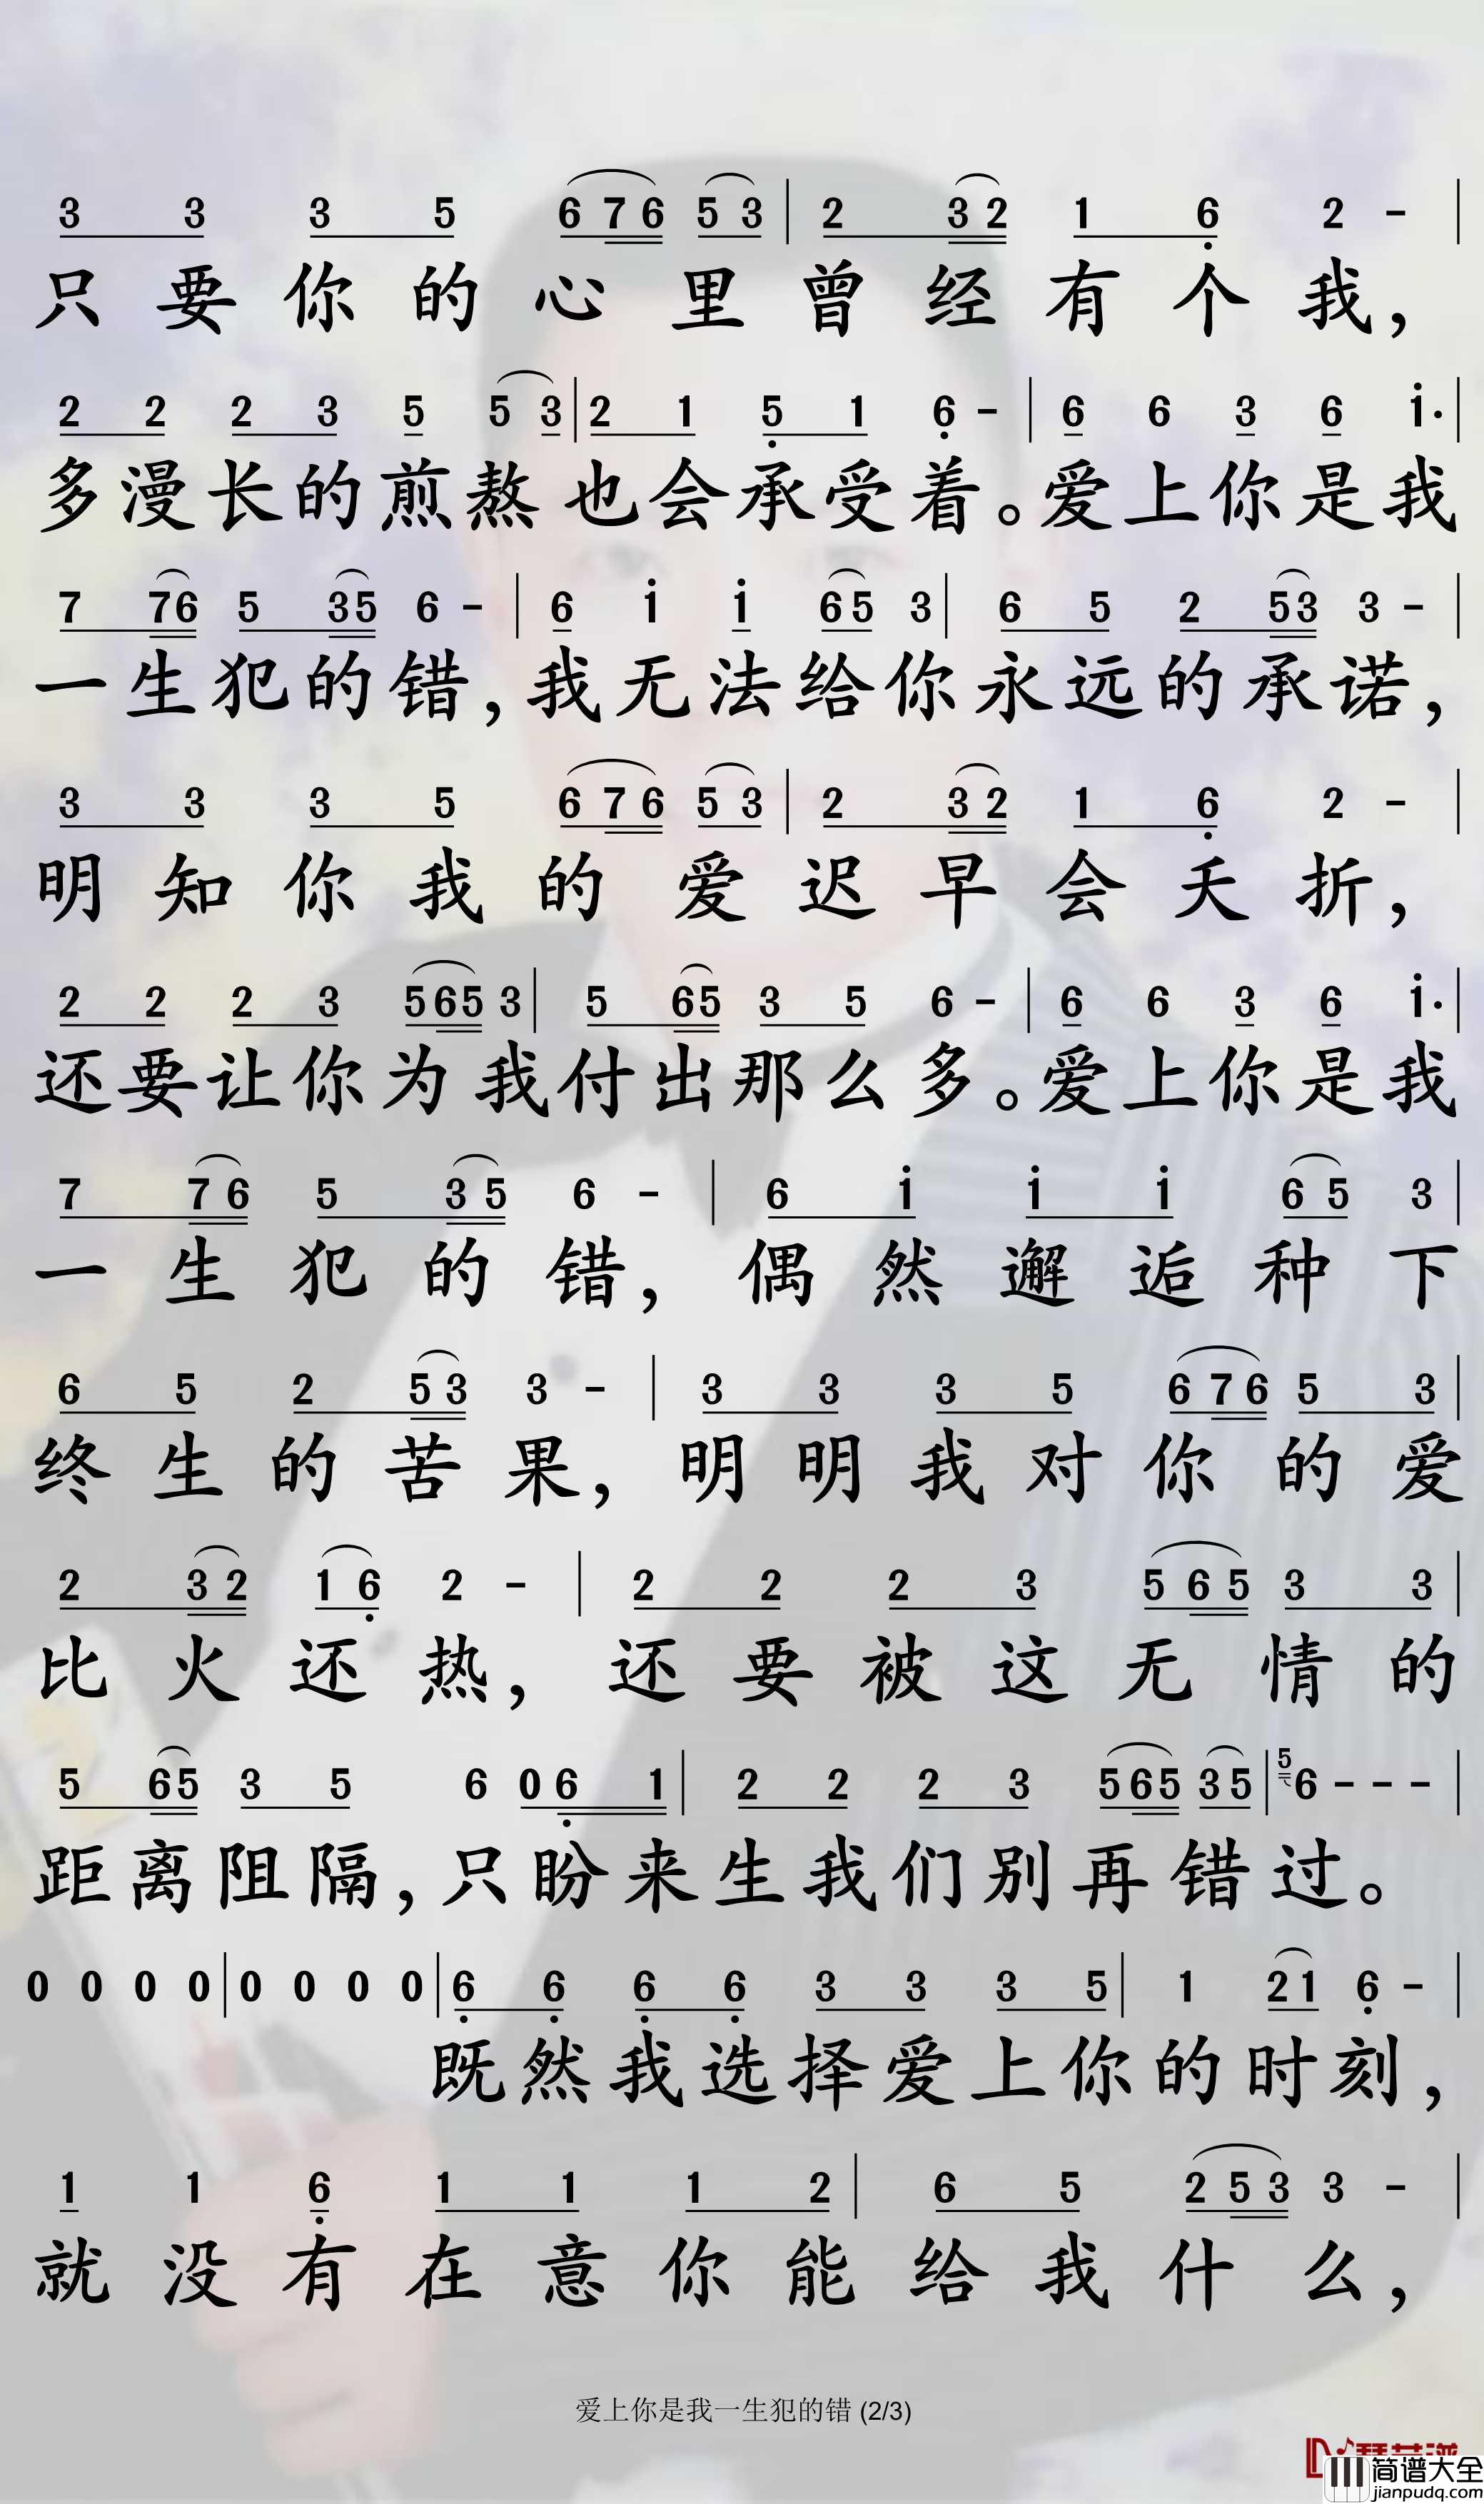 3 3 3 5 6 7 6 5 3 | 2 3 2 1 6 2 - |
只要你的心里曾经有个我,
2 2 2 3 5 5 3 | 2 1 5 1 6 - | 6 6 3 6 i· |
多漫长的煎熬也会承受着。爱上你是我
7 7 6 5 3 5 6 - | 6 i i 6 5 3 | 6 5 2 5 3 3 - |
一生犯的错,我无法给你永远的承诺,
3 3 3 5 6 7 6 5 3 | 2 3 2 1 6 2 - |
明知你我的爱迟早会夭折,
2 2 2 3 5 6 5 3 | 5 6 5 3 5 6 - | 6 6 3 6 i· |
还要让你为我付出那么多。爱上你是我
7 7 6 5 3 5 6 - | 6 i i i 6 5 3 |
一生犯的错,偶然邂逅种下
6 5 2 5 3 3 - | 3 3 3 5 6 7 6 5 3 |
终生的苦果,明明我对你的爱
2 3 2 1 6 2 - | 2 2 2 3 5 6 5 3 3 |
比火还热,还要被这无情的
5 6 5 3 5 6 0 6 1 | 2 2 2 3 5 6 5 3 5 | 5 6 - - - |
距离阻隔,只盼来生我们别再错过。
0 0 0 0 | 0 0 0 0 | 6 6 6 6 3 3 3 5 | 1 2 1 6 - |
既然我选择爱上你的时刻,
1 1 6 1 1 1 2 | 6 5 2 5 3 3 - |
就没有在意你能给我什么,
爱上你是我一生犯的错 (2/3)
简谱大全
jianpudq.com